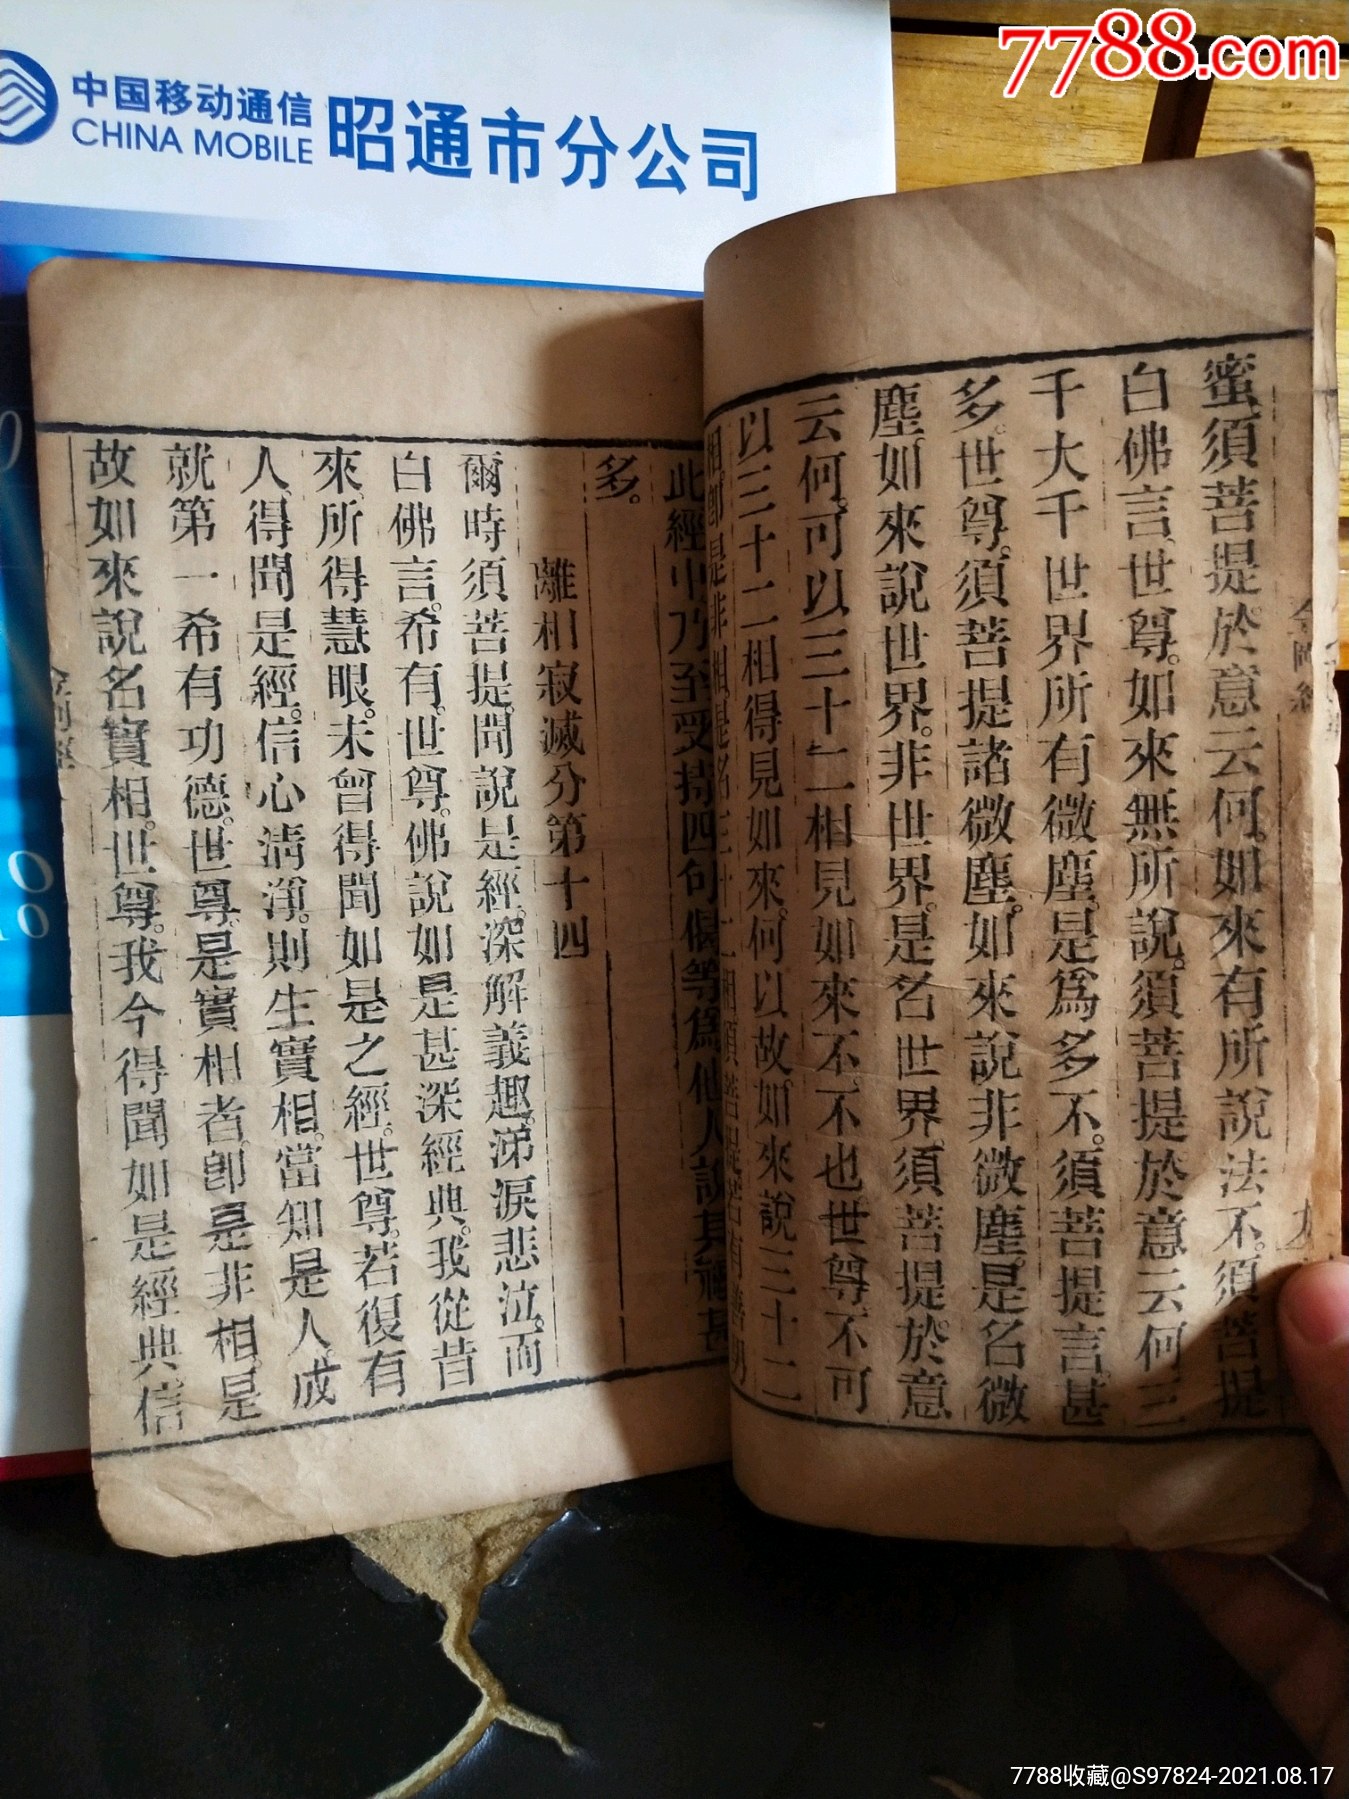 7788.com
中国移动通信
CHINA MOBILE
昭通市分公司
蜜。須菩提。於意云何。如來有所說法不。須菩提
白佛言。世尊。如來無所說。須菩提。於意云何。三
千大千世界所有微塵。是為多不。須菩提言。甚
多。世尊。須菩提。諸微塵。如來說非微塵。是名微
塵。如來說世界。非世界。是名世界。須菩提。於意
云何。可以三十二相見如來不。不也。世尊。不可
以三十二相得見如來。何以故。如來說三十二
相。卽是非相。是名三十二相。須菩提。若有善男
此經中。乃至受持四句偈等。為他人說。其福甚
多。
離相寂滅分第十四
爾時須菩提。聞說是經。深解義趣。涕淚悲泣。而
白佛言。希有。世尊。佛說如是甚深經典。我從昔
來所得慧眼。未曾得聞如是之經。世尊。若復有
人。得聞是經。信心清淨。則生實相。當知是人。成
就第一希有功德。世尊。是實相者。卽是非相。是
故如來說名實相。世尊。我今得聞如是經典。信
金剛經
7788收藏@S97824-2021.08.17